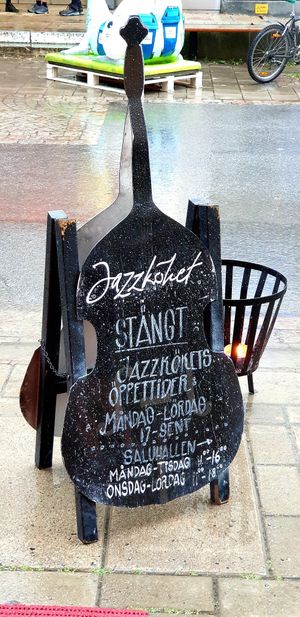 Jazzköket
STÄNGT
JAZZKÖKETS
ÖPPETTIDER
MÅNDAG-LÖRDAG
17-SENT
SALUHALLEN →
MÅNDAG-TISDAG 11⁰⁰-16⁰⁰
ONSDAG-LÖRDAG 11⁰⁰-18⁰⁰